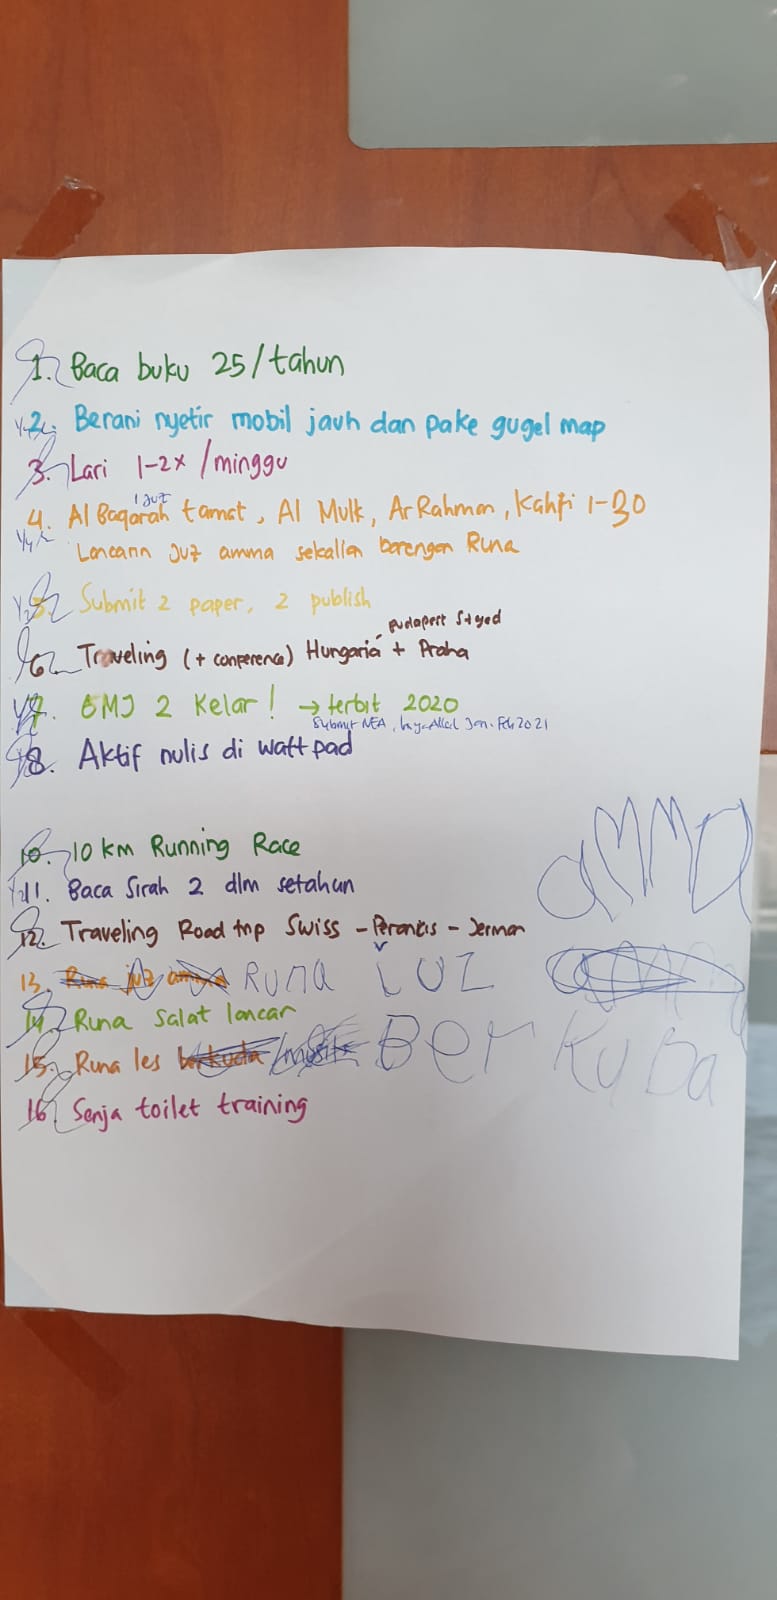 1. Baca buku 25/tahun
1/2 2. Berani nyetir mobil jauh dan pake gugel map
3. Lari 1-2x /minggu
1 juz
4. Al Baqarah tamat, Al Mulk, ArRahman, Kahfi 1-30
Lancarin juz amma sekalian barengan Runa
5. Submit 2 paper, 2 publish
Budapest
6. Traveling (+ conference) Hungaria + Praha
7. 2 Kelar! → terbit 2020
Submit NEA, Jan-Feb 2021
8. Aktif nulis di wattpad
10. 10 km Running Race
amma
1/2 11. Baca Sirah 2 dlm setahun
12. Traveling Road trip Swiss - Perancis - Jerman
13. Runa juz amma Runa iuz
14. Runa salat lancar
15. Runa les berkuda /musik Ber kuDa
16. Senja toilet training